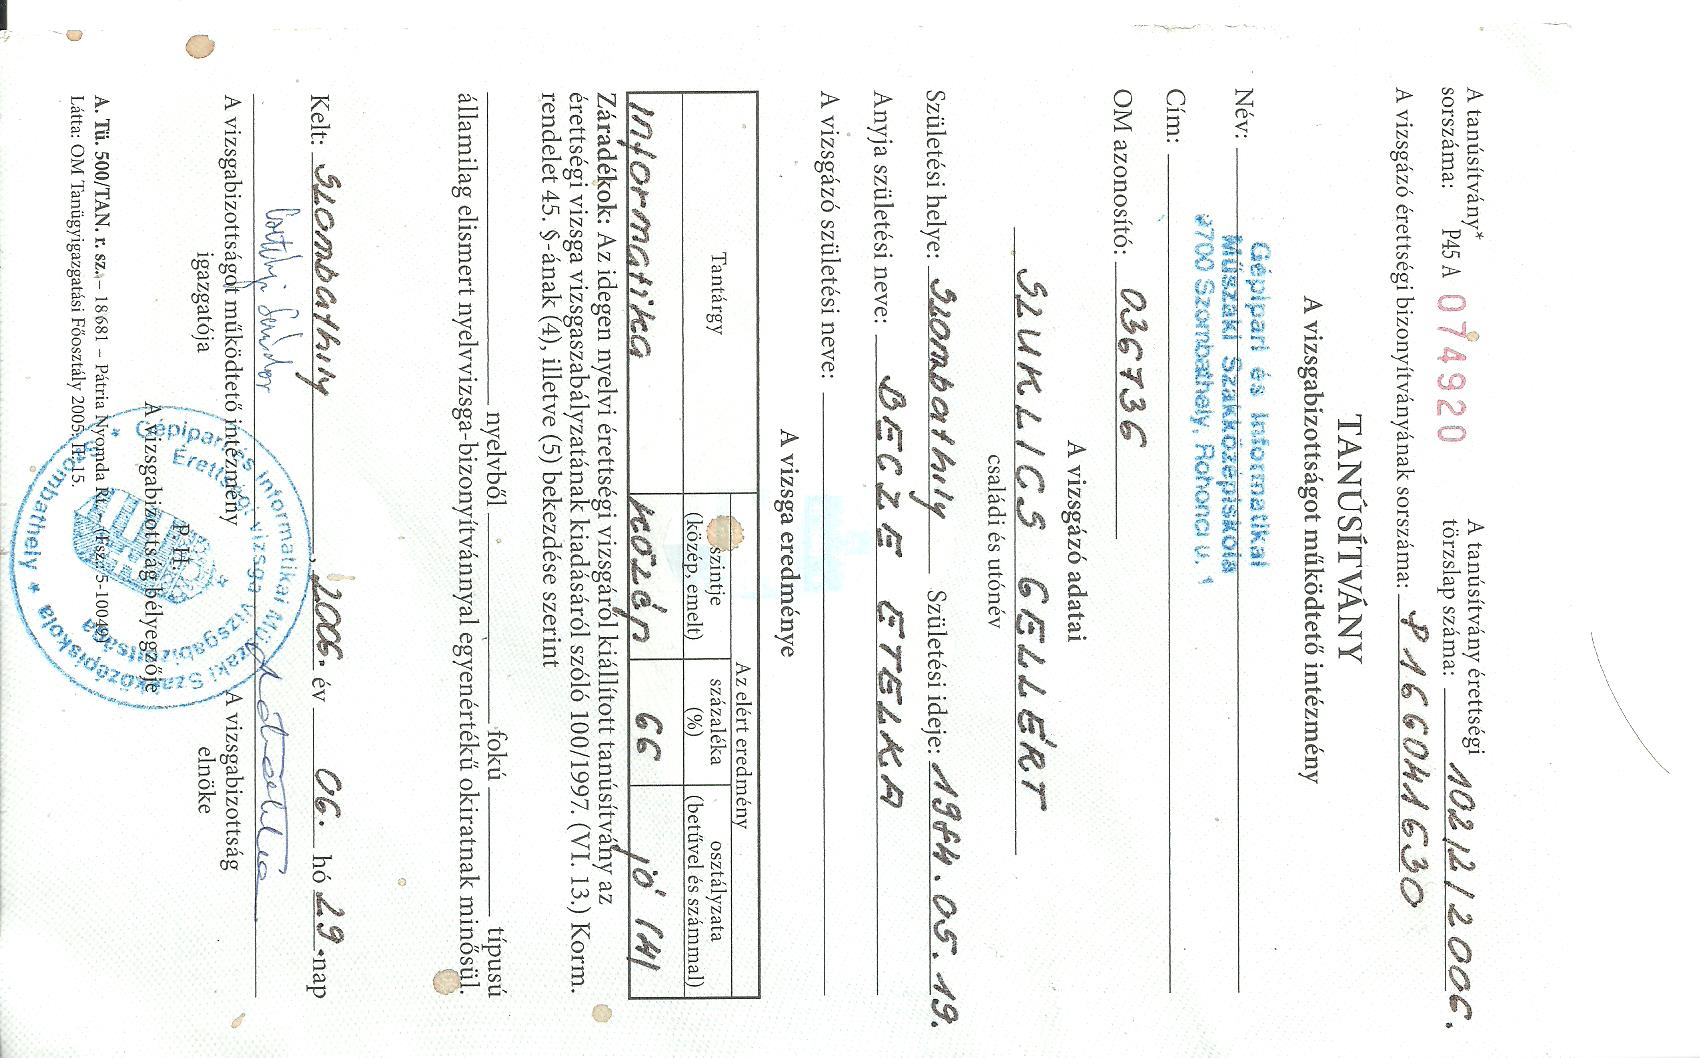 A tanúsítvány* sorszáma: P45 A 074920
A tanúsítvány érettségi törzslap száma: 102/2/2006.
A vizsgázó érettségi bizonyítványának sorszáma: P 166041630
TANÚSÍTVÁNY
A vizsgabizottságot működtető intézmény
Gépipari és Informatikai
Név: Műszaki Szakközépiskola
9700 Szombathely, Rohonci u. 1
Cím:
OM azonosító: 036736
A vizsgázó adatai
SZUKLICS GELLÉRT
családi és utónév
Születési helye: Szombathely Születési ideje: 1984. 05. 19.
Anyja születési neve: BECZE ETELKA
A vizsgázó születési neve:
A vizsga eredménye
Tantárgy
Az elért eredmény
szintje (közép, emelt)
százaléka (%)
osztályzata (betűvel és számmal)
Informatika közép 66 jó /4/
Záradékok: Az idegen nyelvi érettségi vizsgáról kiállított tanúsítvány az
érettségi vizsga vizsgaszabályzatának kiadásáról szóló 100/1997. (VI. 13.) Korm.
rendelet 45. §-ának (4), illetve (5) bekezdése szerint
nyelvből fokú típusú
államilag elismert nyelvvizsga-bizonyítvánnyal egyenértékű okiratnak minősül.
Kelt: Szombathely, 2006. év 06. hó 29. nap
A vizsgabizottságot működtető intézmény
igazgatója
A vizsgabizottság
elnöke
P. H.
A vizsgabizottság bélyegzője
Gépipari és Informatikai Műszaki Szakközépiskola * Szombathely *
Érettségi vizsga vizsgabizottsága
A. Tü. 500/TAN. r. sz. – 18681 – Pátria Nyomda Rt. (Fsz.: 5-10049)
Látta: OM Tanügyigazgatási Főosztály 2005. II. 15.